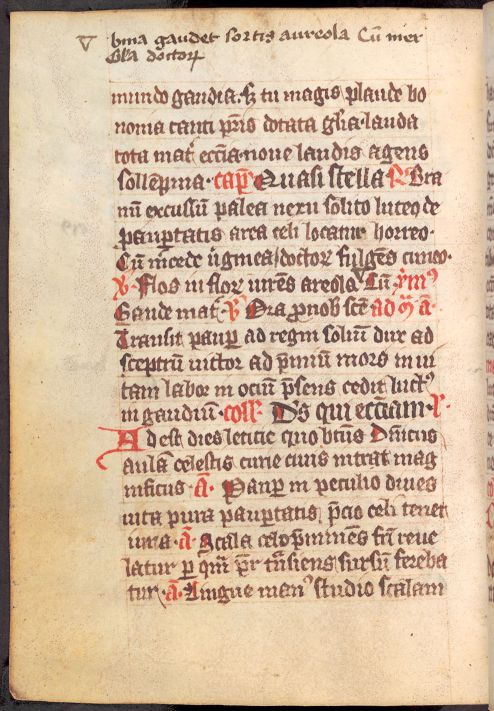 V bina gaudet sortis aureola Cū mer
Gl'a doctoꝝ
mundo gaudia. sꝫ tu magis plaude bo
nonia tanti pr̄is dotata gl'ia. lauda
tota mat' eccl'ia. noue laudis agens
sollēpnia. cap̄ Quasi stella R Gra
nū excussū palea nexu solito luteo de
paup̄tatis area celi locatur horreo.
Cū m'cede u'ginea doctor' fulgēs cuneo.
V Flos in flor' uirēs areola. Cū. ymꝰ
Gaude mat'. V Ora p nob sc̄e ad m̄ a
Transit paup' ad regni soliū dux ad
sceptrū uictor ad p̄miū mors in ui
tam labor in ociū p̄sens cedit luctꝰ
in gaudiū. coll' Ds qui eccl'iam. I
Adest dies leticie quo btūs Dn̄icus
aulā celestis curie ciuis intrat mag
nificus. A. Paup' in peculio diues
uita pura paup̄tatis p̄cio celi tenet
iura. A Scala celo p̄minēs fr̄i reue
latur p quā p̄r trāsiens sursū fereba
tur. A. Lingue manꝰ studio scalam